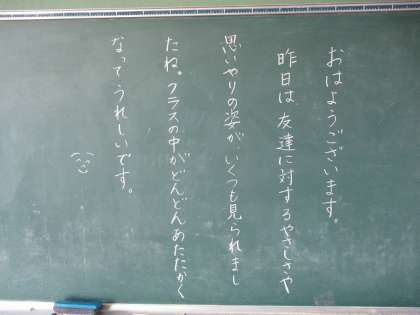 おはようございます。
昨日は、友達に対するやさしさや
思いやりの姿が、いくつも見られまし
たね。クラスの中がどんどんあたたかく
なってうれしいです。